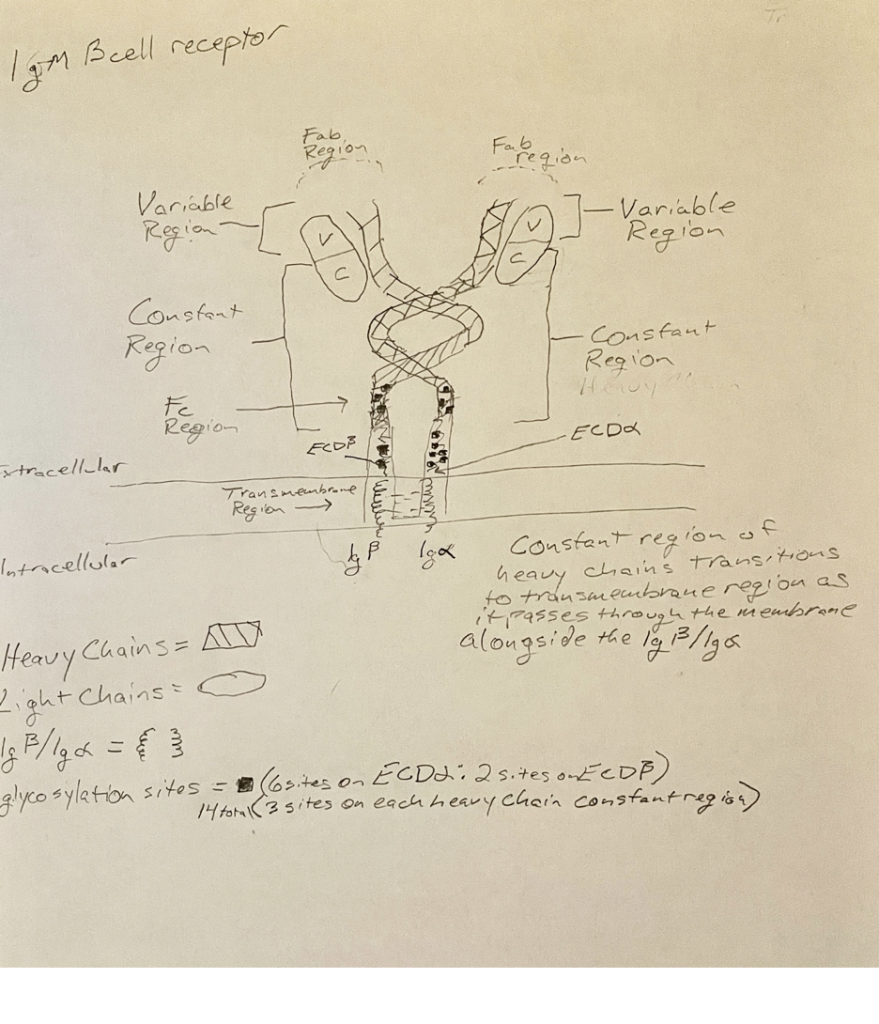 IgM B cell receptor
Fab
Region
Fab
region
Variable
Region
Variable
Region
V
C
V
C
Constant
Region
Constant
Region
Heavy
Fc
Region
ECDβ
ECDα
Extracellular
Transmembrane
Region
Intracellular
Ig β
Igα
Constant region of
heavy chains transitions
to transmembrane region as
it passes through the membrane
alongside the Ig β/Igα
Heavy Chains =
Light Chains =
Ig β/Igα =
glycosylation sites = (6 sites on ECDα: 2 sites on ECDβ)
14 total (3 sites on each heavy chain constant region)